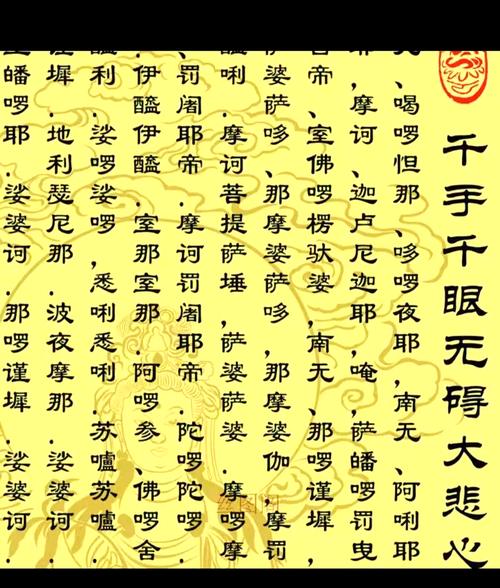 千手千眼无碍大悲心
、喝啰怛那、哆啰夜耶,南无、阿唎耶
耶,摩诃、迦卢尼迦耶,唵,萨皤啰罚曳
帝、室佛啰楞驮婆,南无、那啰谨墀,
萨婆萨哆、那摩婆萨哆,那摩婆伽,摩罚
唎.摩诃菩提萨埵.萨婆萨婆.摩啰摩
、罚阇耶帝.摩诃罚阇耶帝.陀啰陀啰.
.伊醯伊醯.室那室那.阿啰参、佛啰舍
醯利.娑啰娑啰,悉唎悉唎.苏嚧苏嚧
墀.地利瑟尼那.波夜摩那.娑婆诃
皤啰耶.娑婆诃.那啰谨墀.娑婆诃